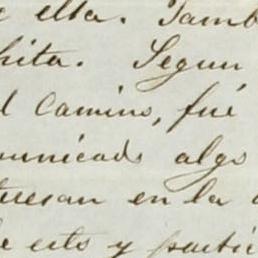 e ella. Tamb
hita. Segun
l Camino, fué
omunicado algo
teresan en la
de esto y partic